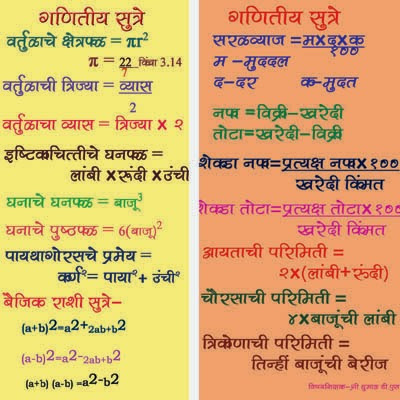 गणितीय सुत्रे
वर्तुळाचे क्षेत्रफळ = πr²
π = 22/7 किंवा 3.14
वर्तुळाची त्रिज्या = व्यास/2
वर्तुळाचा व्यास = त्रिज्या x २
इष्टिकाचित्तीचे घनफळ =
लांबी x रूंदी x उंची
घनाचे घनफळ = बाजू³
घनाचे पुष्ठफळ = 6(बाजू)²
पायथागोरसचे प्रमेय =
कर्ण² = पाया² + उंची²
बैजिक राशी सुत्रे-
(a+b)² = a² + 2ab + b²
(a-b)² = a² - 2ab + b²
(a+b) (a-b) = a² - b²
गणितीय सुत्रे
सरळव्याज = मxदxक/१००
म -मुददल
द-दर क-मुदत
नफा = विक्री-खरेदी
तोटा = खरेदी-विक्री
शेकडा नफा = प्रत्यक्ष नफा x १००
खरेदी किंमत
शेकडा तोटा = प्रत्यक्ष तोटा x १००
खरेदी किंमत
आयताची परिमिती =
२x(लांबी+रूंदी)
चौरसाची परिमिती =
४xबाजूंची लांबी
त्रिकोणाची परिमिती =
तिन्हीं बाजूंची बेरीज